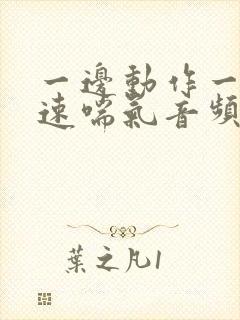 一邊動作一
速喘氣音頻
葉之凡1